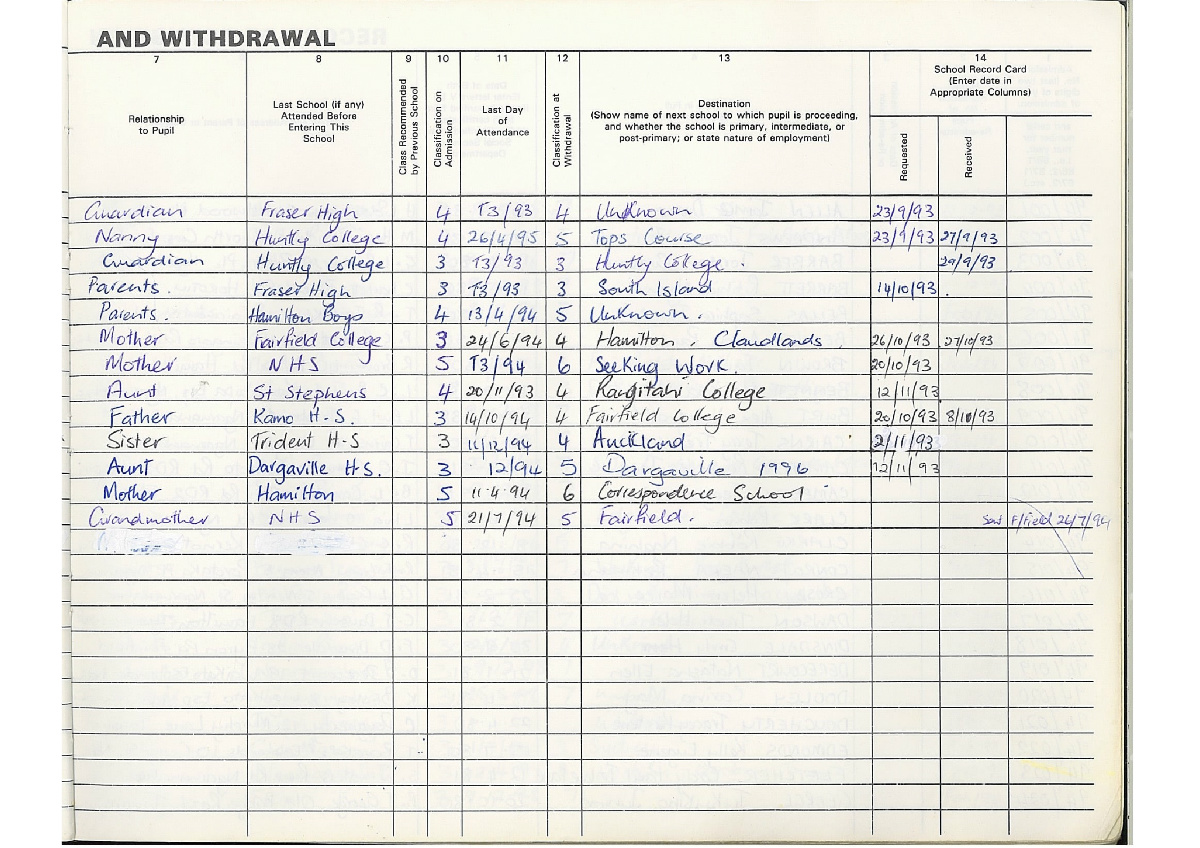 AND WITHDRAWAL
7 8 9 10 11 12 13 14
Relationship to Pupil
Last School (if any) Attended Before Entering This School
Class Recommended by Previous School
Classification on Admission
Last Day of Attendance
Classification at Withdrawal
Destination
(Show name of next school to which pupil is proceeding, and whether the school is primary, intermediate, or post-primary; or state nature of employment)
School Record Card
(Enter date in Appropriate Columns)
Requested
Received
Guardian Fraser High 4 T3/93 4 Unknown 23/9/93
Nanny Huntly College 4 26/4/95 5 Tops Course 23/9/93 27/9/93
Guardian Huntly College 3 T3/93 3 Huntly College 29/9/93
Parents. Fraser High 3 T3/93 3 South Island 14/10/93
Parents. Hamilton Boys 4 13/4/94 5 Unknown.
Mother Fairfield College 3 24/6/94 4 Hamilton, Claudlands 26/10/93 27/10/93
Mother NHS 5 T3/94 6 Seeking Work. 20/10/93
Aunt St Stephens 4 20/11/93 4 Rangitahi College 12/11/93
Father Kamo H.S. 3 14/10/94 4 Fairfield College 20/10/93 8/10/93
Sister Trident H-S 3 11/12/94 4 Auckland 2/11/93
Aunt Dargaville H.S. 3 12/94 5 Dargaville 1996 12/11/93
Mother Hamilton 5 11.4.94 6 Correspondence School
Grandmother NHS 5 21/7/94 5 Fairfield. Sent F/field 26/7/94